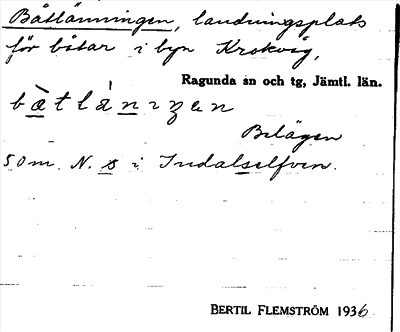 Båtlänningen, landningsplats
för båtar i byn Krokvåg,
Ragunda sn och tg, Jämtl. län.
Belägen
50 m. N. i Indalselfven.
BERTIL FLEMSTRÖM 1936.